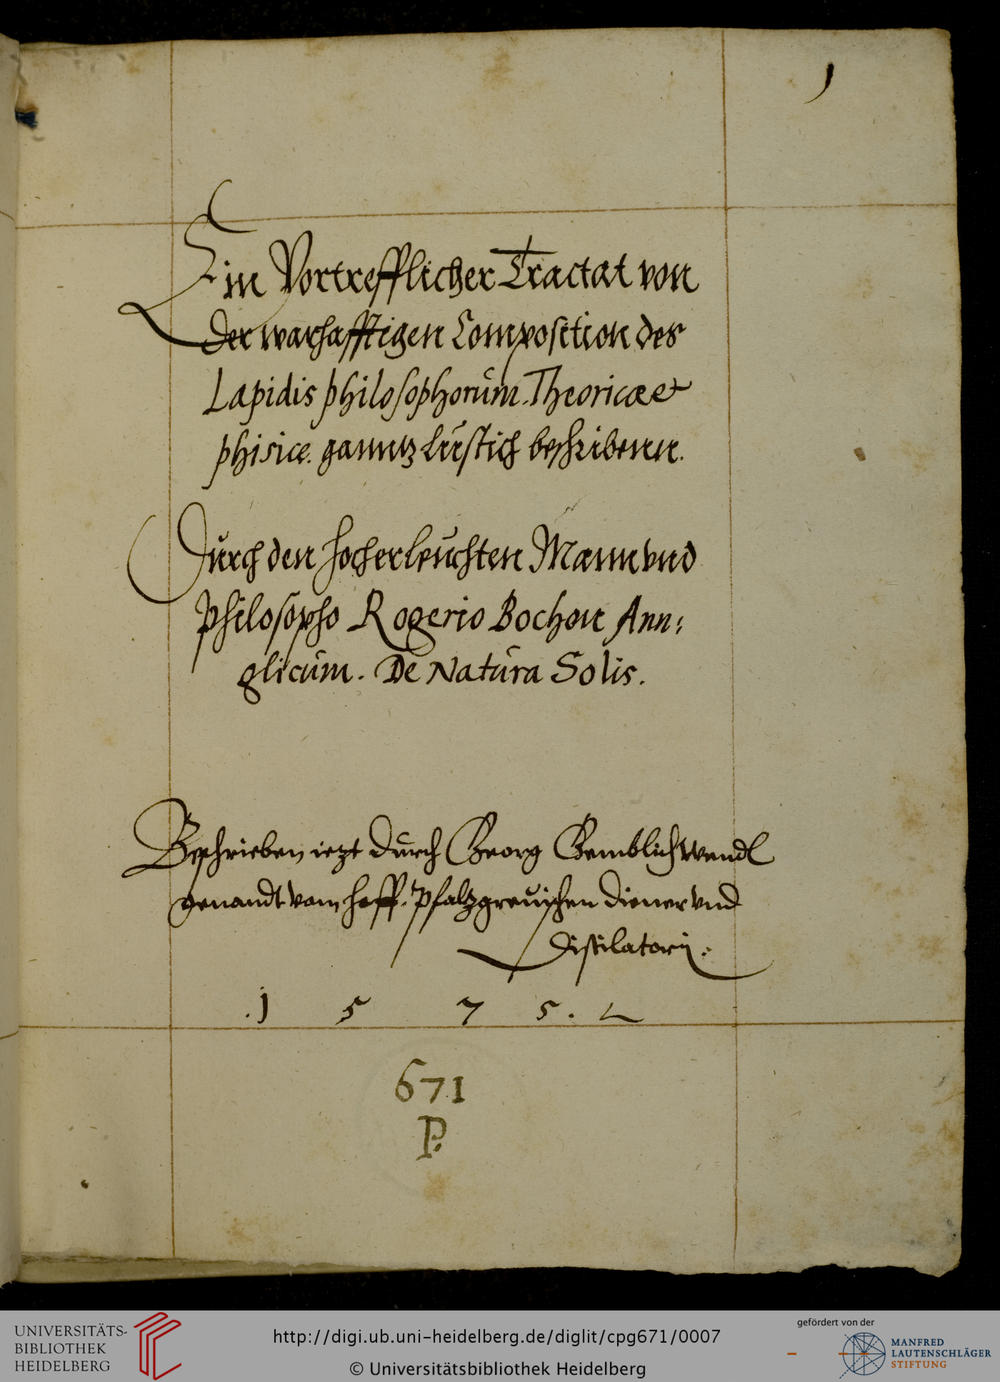 1
Ein Vortrefflicher Tractat von
Der warhafftigen Composition des
Lapidis philosophorum. Theoricæ et
phisicæ. ganntz lustich beschribenn.
Durch den hocherleuchten Mann vnd
Philosopho Rogerio Bochon Ann:
glicum. De Natura Solis.
Beschrieben ietzt durch Georg
genandt vom hoff. Pfaltzgreuischen Diener vnd
Distilatorn.
. 1 5 7 5 .
671
P.
UNIVERSITÄTS-
BIBLIOTHEK
HEIDELBERG
http://digi.ub.uni-heidelberg.de/diglit/cpg671/0007
© Universitätsbibliothek Heidelberg
gefördert von der
MANFRED
LAUTENSCHLÄGER
STIFTUNG